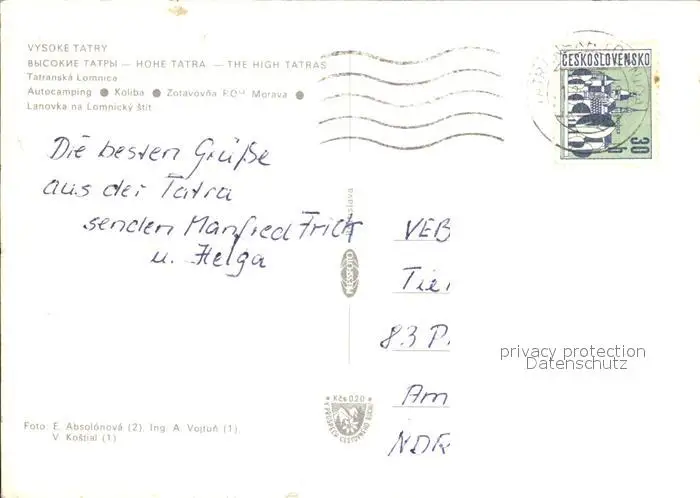 VYSOKÉ TATRY
ВЫСОКИЕ ТАТРЫ — HOHE TATRA — THE HIGH TATRAS
Tatranská Lomnica
Autocamping ● Koliba ● Zotavovňa ROH Morava ●
Lanovka na Lomnický štít
ČESKOSLOVENSKO
30 h
Die besten Grüße
aus der Tatra
senden Manfred Frick
u. Helga
PRESSFOTO
VEB
Tie
83 P.
Am
NDR
privacy protection
Datenschutz
Kčs 0,20
Foto: E. Absolónová (2), Ing. A. Vojtuň (1),
V. Koštial (1)